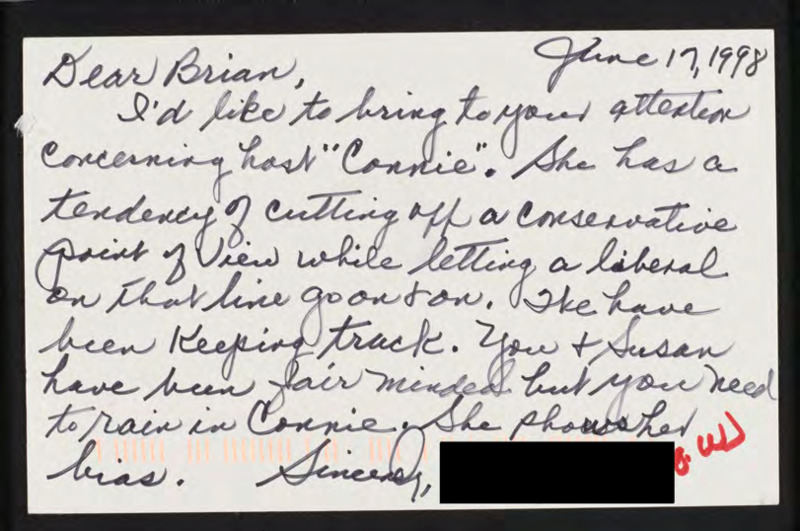 June 17, 1998
Dear Brian,
I'd like to bring to your attention
concerning host "Connie". She has a
tendency of cutting off a conservative
point of view while letting a liberal
on that line go on & on. We have
been keeping track. You & Susan
have been fair minded but you need
to rain in Connie. She shows her
bias. Sincerely,